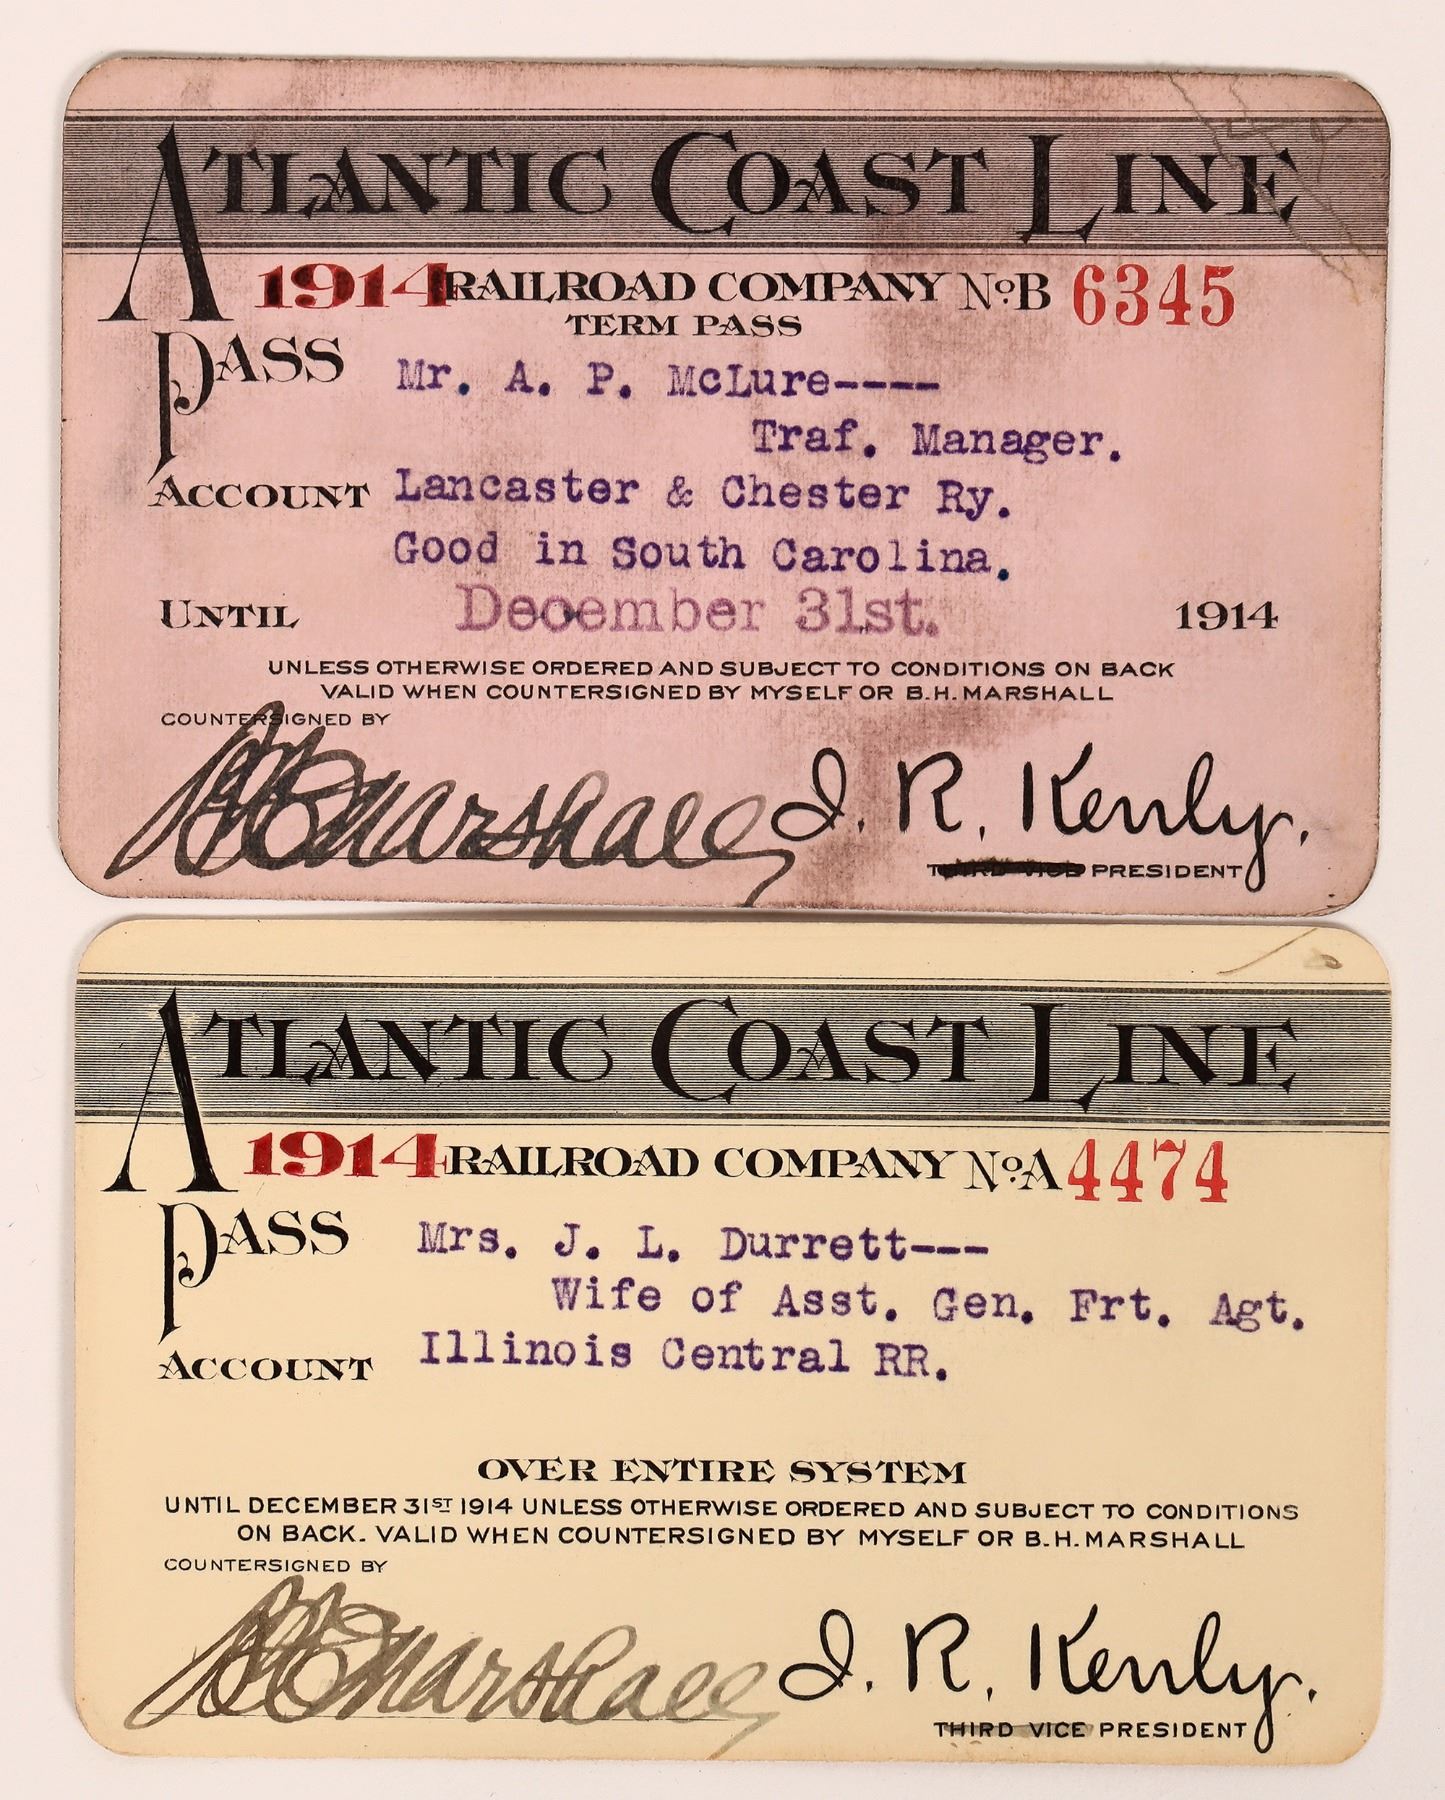 ATLANTIC COAST LINE
1914 RAILROAD COMPANY No. B 6345
TERM PASS
PASS Mr. A. P. McLure----
Traf. Manager.
ACCOUNT Lancaster & Chester Ry.
Good in South Carolina.
UNTIL December 31st. 1914
UNLESS OTHERWISE ORDERED AND SUBJECT TO CONDITIONS ON BACK
VALID WHEN COUNTERSIGNED BY MYSELF OR B.H. MARSHALL
COUNTERSIGNED BY
BH Marshall J. R. Kenly.
THIRD VICE PRESIDENT
ATLANTIC COAST LINE
1914 RAILROAD COMPANY No. A 4474
PASS Mrs. J. L. Durrett---
Wife of Asst. Gen. Frt. Agt.
ACCOUNT Illinois Central RR.
OVER ENTIRE SYSTEM
UNTIL DECEMBER 31ST 1914 UNLESS OTHERWISE ORDERED AND SUBJECT TO CONDITIONS
ON BACK. VALID WHEN COUNTERSIGNED BY MYSELF OR B.H. MARSHALL
COUNTERSIGNED BY
BH Marshall J. R. Kenly.
THIRD VICE PRESIDENT